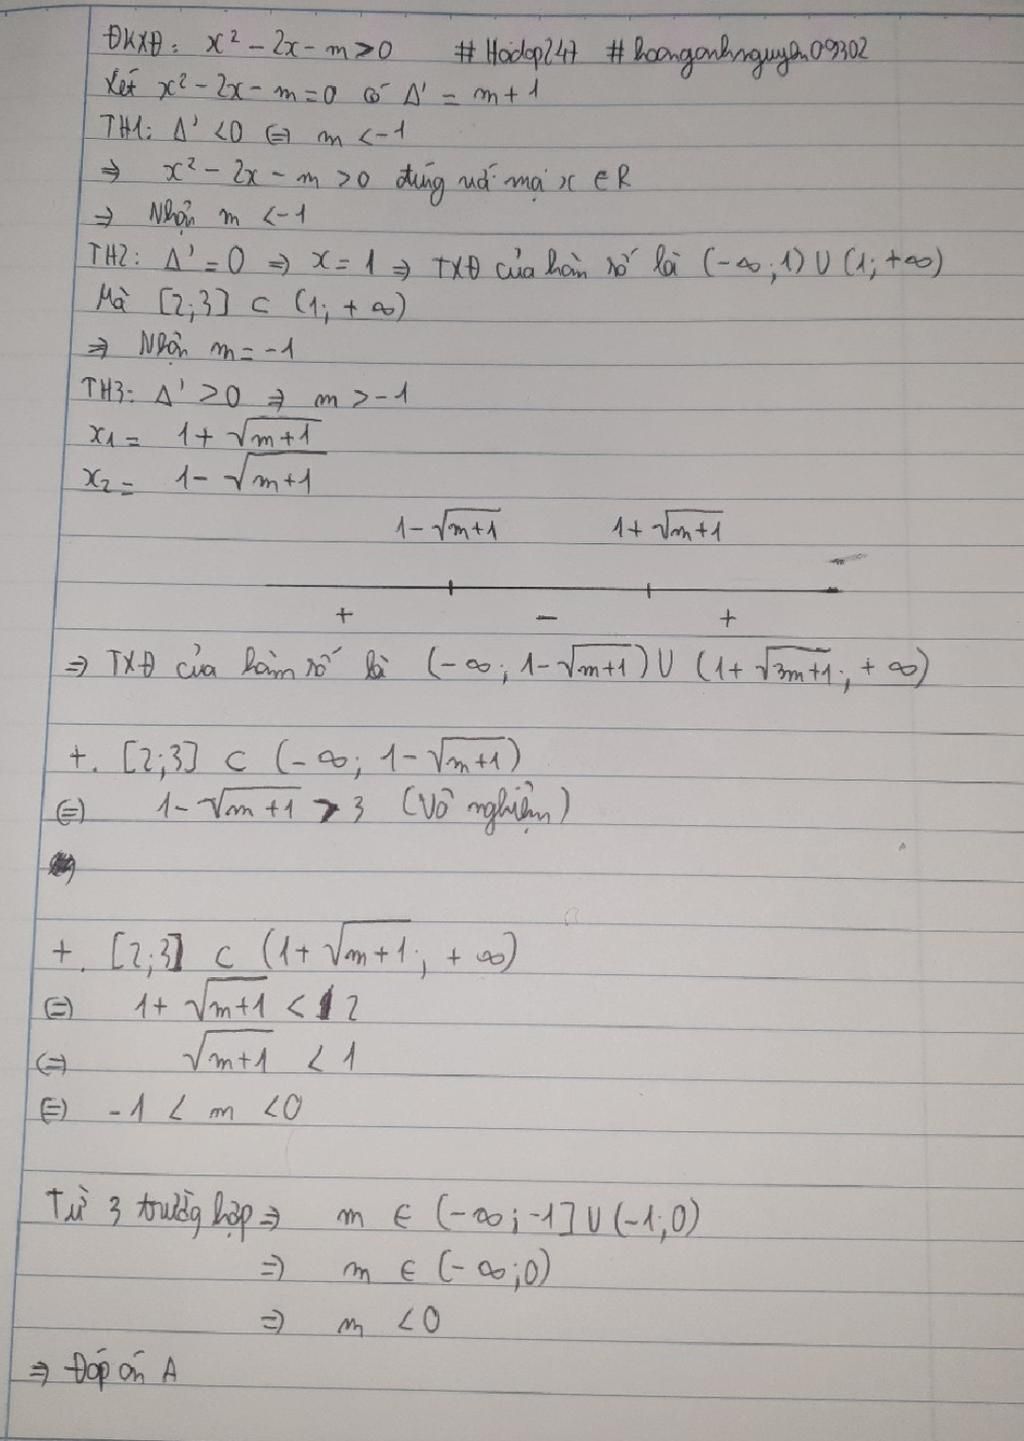 ĐKXĐ: x² - 2x - m > 0 #Hoidap247 #hoanganhnguyen09302
Xét x² - 2x - m = 0 có Δ' = m + 1
TH1: Δ' < 0 ⇔ m < -1
⇒ x² - 2x - m > 0 đúng với mọi x ∈ R
⇒ Nhận m < -1
TH2: Δ' = 0 ⇒ x = 1 ⇒ TXĐ của hàm số là (-∞; 1) ∪ (1; +∞)
Mà [2;3] ⊂ (1; +∞)
⇒ Nhận m = -1
TH3: Δ' > 0 ⇒ m > -1
x₁ = 1 + √(m+1)
x₂ = 1 - √(m+1)
1 - √(m+1) 1 + √(m+1)
+ - +
⇒ TXĐ của hàm số là (-∞; 1 - √(m+1)) ∪ (1 + √(3m+1); +∞)
+. [2;3] ⊂ (-∞; 1 - √(m+1))
⇔ 1 - √(m+1) > 3 (Vô nghiệm)
+. [2;3] ⊂ (1 + √(m+1); +∞)
⇔ 1 + √(m+1) < 2
⇔ √(m+1) < 1
⇔ -1 < m < 0
Từ 3 trường hợp ⇒ m ∈ (-∞; -1] ∪ (-1; 0)
⇒ m ∈ (-∞; 0)
⇒ m < 0
⇒ Đáp án A